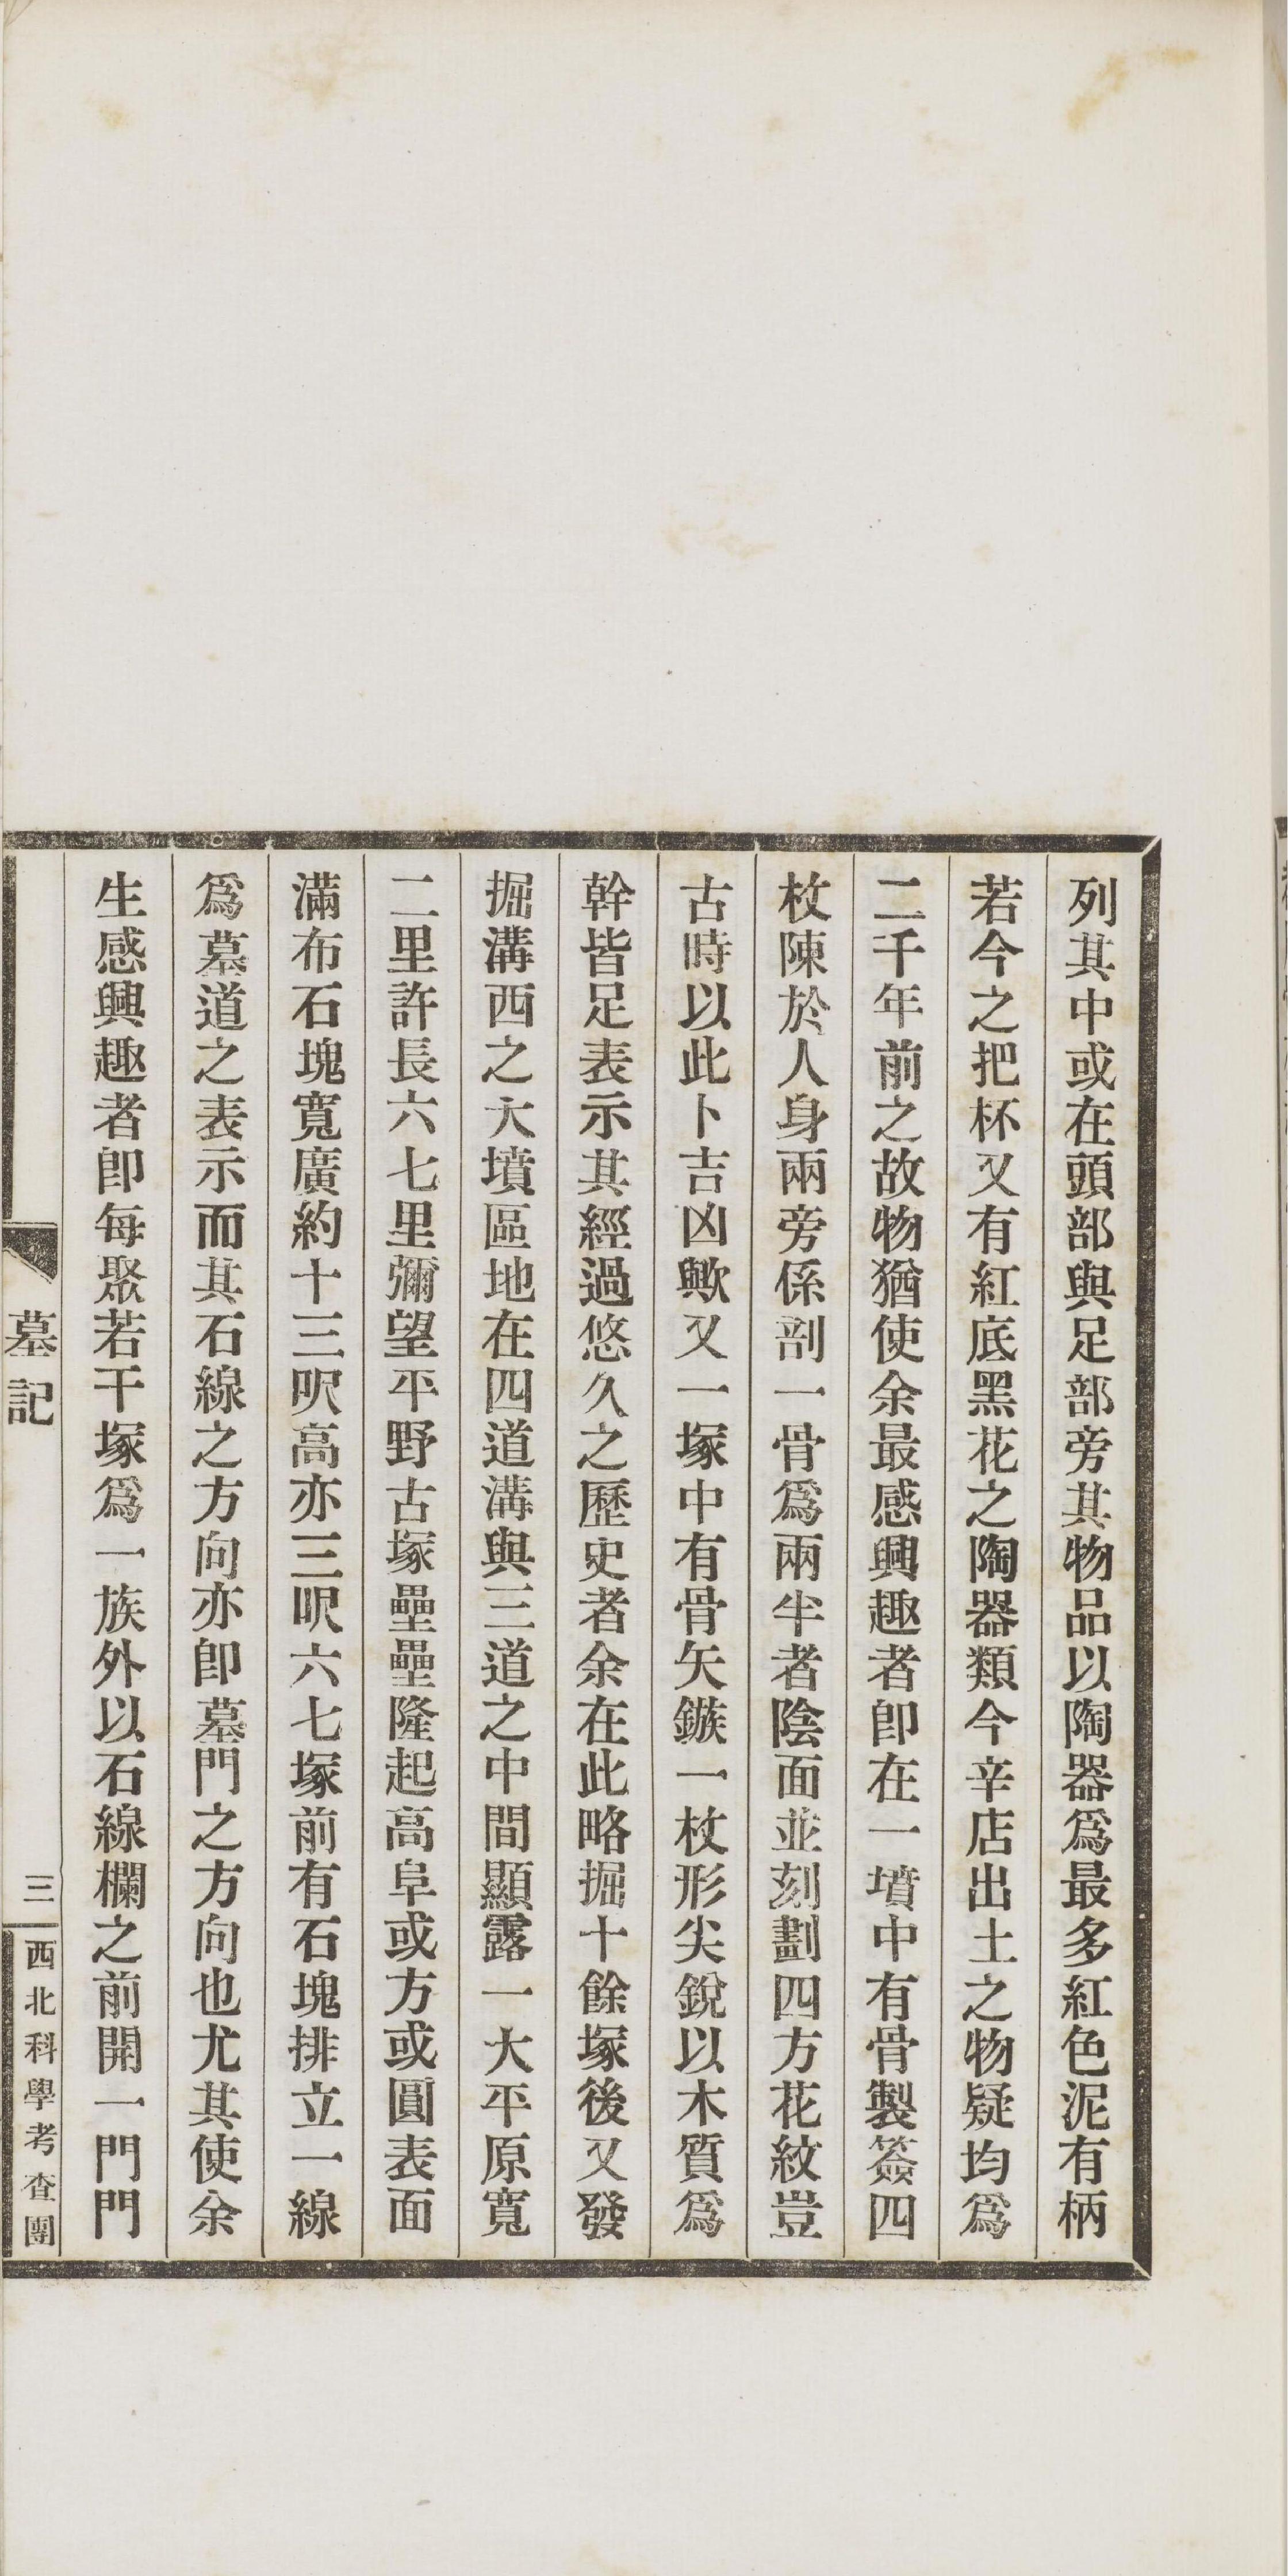 列其中或在頭部與足部旁其物品以陶器爲最多紅色泥有柄
若今之把杯又有紅底黑花之陶器類今辛店出土之物疑均爲
二千年前之故物猶使余最感興趣者卽在一墳中有骨製簽四
枚陳於人身兩旁係剖一骨爲兩半者陰面並刻劃四方花紋豈
古時以此卜吉凶歟又一塚中有骨矢鏃一枚形尖銳以木質爲
幹皆足表示其經過悠久之歷史者余在此略掘十餘塚後又發
掘溝西之大墳區地在四道溝與三道之中間顯露一大平原寬
二里許長六七里彌望平野古塚壘壘隆起高阜或方或圓表面
滿布石塊寬廣約十三呎高亦三呎六七塚前有石塊排立一線
爲墓道之表示而其石線之方向亦卽墓門之方向也尤其使余
生感興趣者卽每聚若干塚爲一族外以石線欄之前開一門門
墓記
三
西北科學考查團